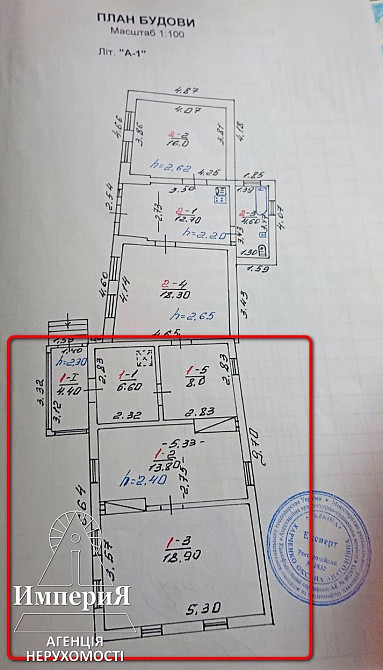 ПЛАН БУДОВИ
Масштаб 1:100
Літ. "А-1"
4.87
4.07
4.66
3.86
2-2
16.0
3.81
4.18
h=2.62
4.25
3.30
1.85
1.39
2.54
2.73
2-1
12.70
2-3
4.60
3.17
4.07
h=2.20
3.43
1.30
1.59
4.60
4.14
2-4
18.30
3.43
h=2.65
4.65
1.40
h=2.30
1-I
4.40
3.32
3.12
2.83
1-1
6.60
1-5
8.0
2.83
2.32
2.83
5.33
1-2
13.80
2.75
h=2.40
9.70
3.57
1-3
18.90
5.30
Експерт
ИмпериЯ
АГЕНЦІЯ
НЕРУХОМОСТІ